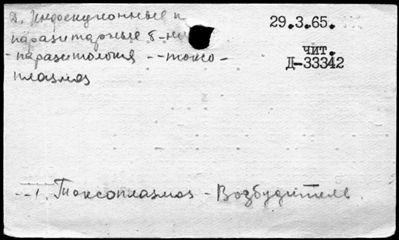 2. Инфекционные и
паразитарные б-ни
- паразитология -- токсо-
плазмоз
29.3.65.
чит.
Д-33342
--1. Токсоплазмоз - Возбудитель.